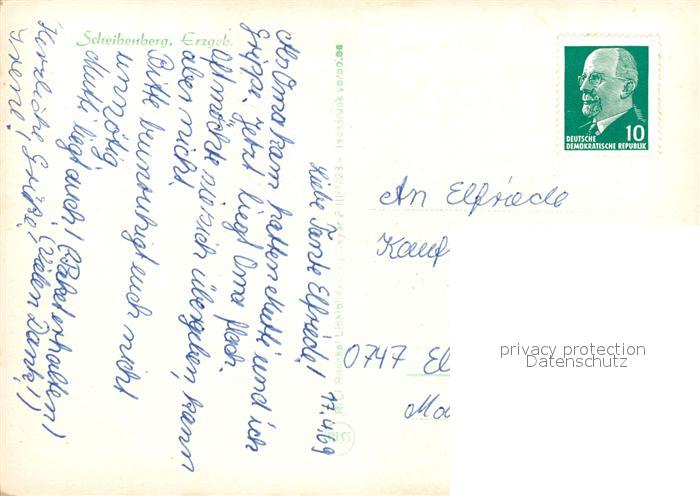 Scheibenberg, Erzgeb.
17.4.69
Liebe Tante Elfriede!
Als Oma kam hatten Mutti und ich
Grippe. Jetzt liegt Oma flach.
Oft möchte sie sich übergeben, kann
aber nicht.
Bitte beunruhigt euch nicht
unnötig.
Mutti liegt auch! (Paket erhalten!
Vielen Dank!)
Herzliche Grüße!
Irene!
DEUTSCHE
DEMOKRATISCHE REPUBLIK
10
An Elfriede
Kauf
0747 El
privacy protection
Datenschutz